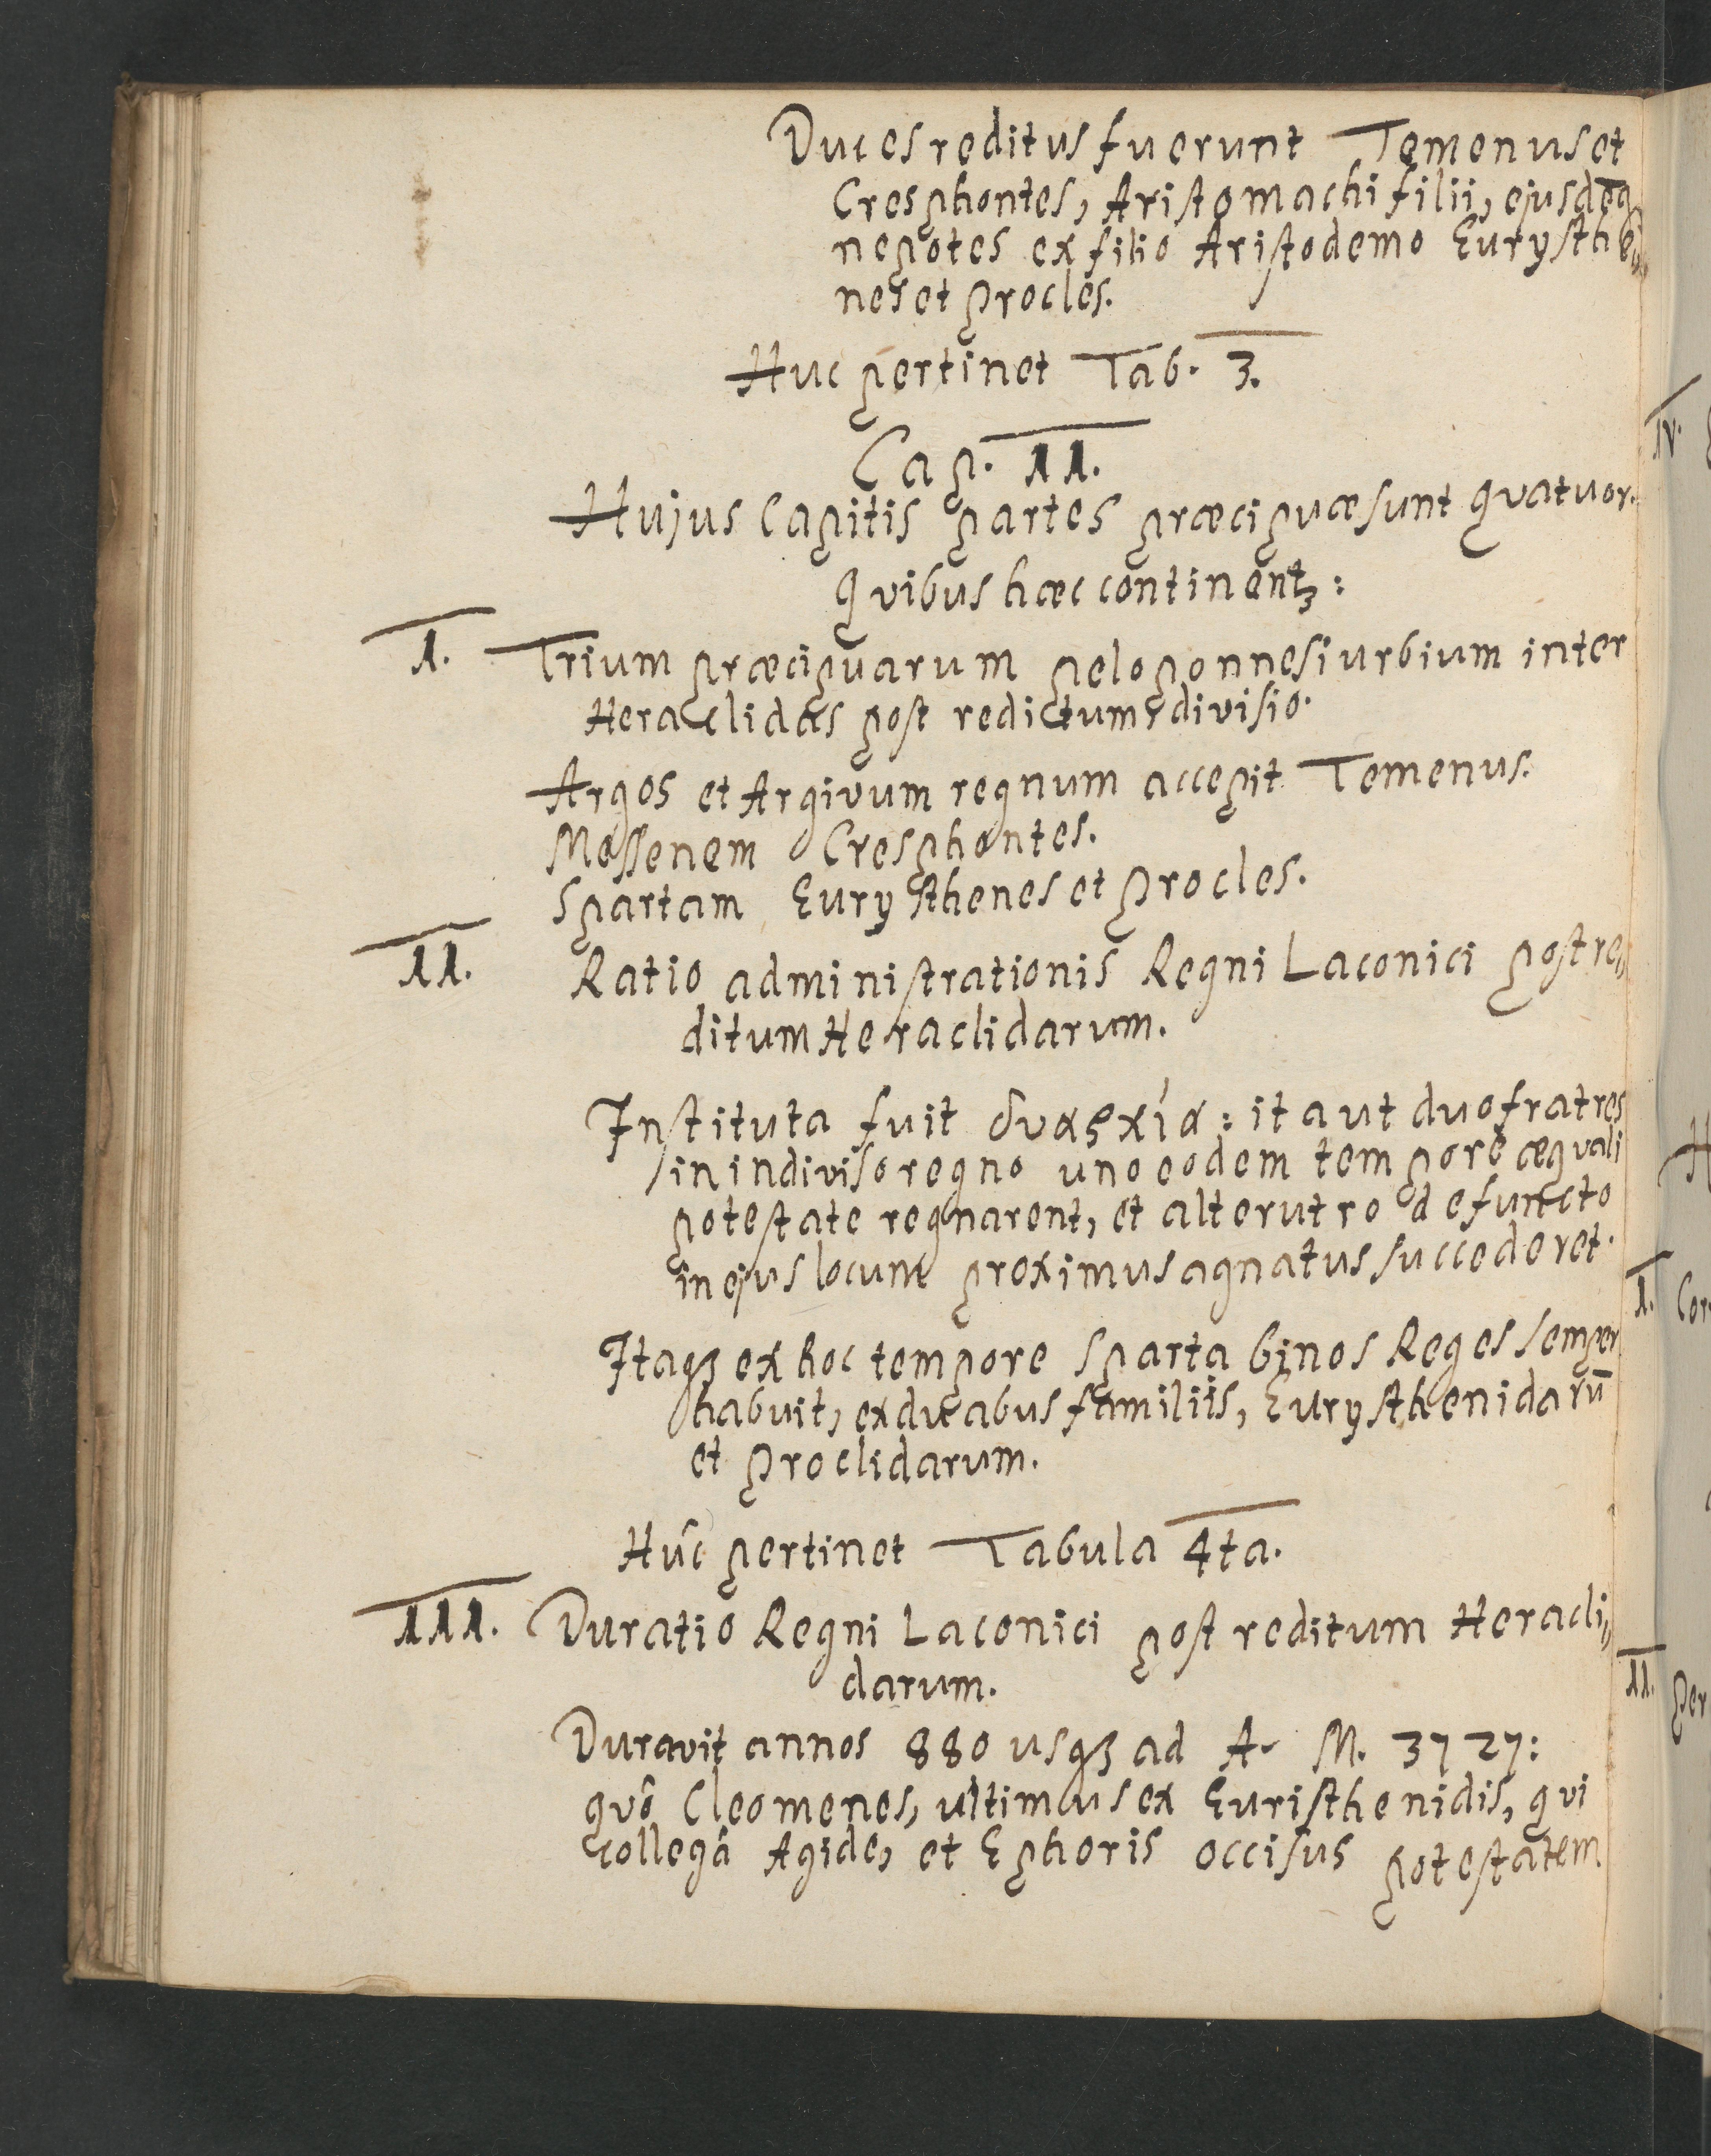 Duces reditus fuerunt Temenus et
Cresphontes, Aristomachi filii, ejusdēq
nepotes ex filio Aristodemo Eurysthe„
nes et Procles.
Huc pertinet Tab. 3.
Cap. II.
Hujus Capitis partes præcipuæ sunt qvatuor.
Qvibus hæc continentꝫ:
I. Trium præcipuarum peloponnesi urbium inter
Heraclidas post redictum divisio.
Argos et Argivum regnum accepit Temenus.
Messenem Cresphontes.
Spartam Eurysthenes et Procles.
II. Ratio administrationis Regni Laconici post re„
ditum Heraclidarum.
Instituta fuit δυαρχία: ita ut duo fratres
in indiviso regno uno eodem tempore æqvali
potestate regnarent, et alterutro defuncto
in ejus locum proximus agnatus succederet.
Itaqꝫ ex hoc tempore Sparta binos Reges semper
habuit, ex duabus familiis, Eurysthenidarū
et Proclidarum.
Hûc pertinet Tabula 4ta.
III. Duratio Regni Laconici post reditum Heracli„
darum.
Duravit annos 880 usqꝫ ad A. M. 3727:
qvô Cleomenes, ultimus ex Euristhenidis, qvi
collegâ Agide, et Ephoris occisus potestatem
IV.
H
I. Cor
II. Per